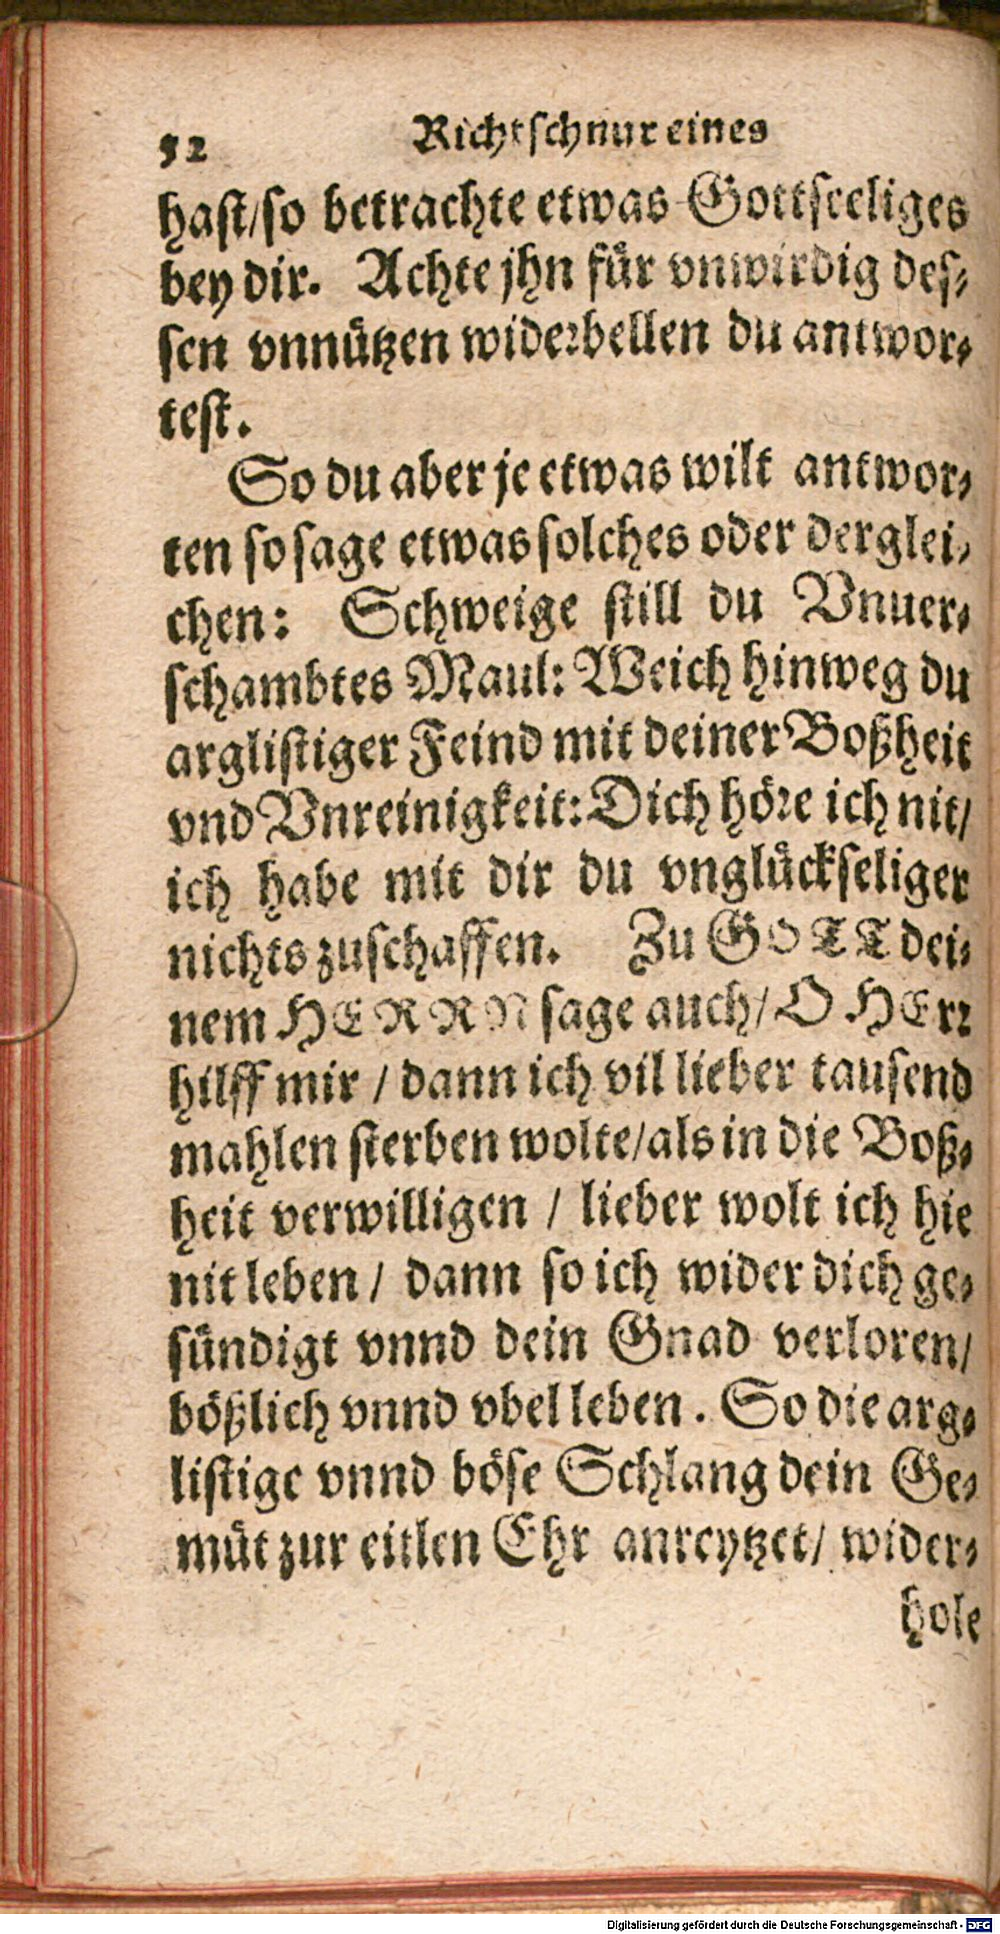 52 Richtschnur eines
hast/so betrachte etwas Gottseeliges
bey dir. Achte jhn für vnwirdig des-
sen vnnützen widerbellen du antwor-
test.
So du aber je etwas wilt antwor-
ten so sage etwas solches oder derglei-
chen: Schweige still du Vnuer-
schambtes Maul: Weich hinweg du
arglistiger Feind mit deiner Boßheit
vnd Vnreinigkeit: Dich höre ich nit/
ich habe mit dir du vnglückseliger
nichts zuschaffen. Zu GOTT dei-
nem HERRN sage auch/ O HErr
hilff mir / dann ich vil lieber tausend
mahlen sterben wolte/als in die Boß-
heit verwilligen / lieber wolt ich hie
nit leben / dann so ich wider dich ge-
sündigt vnnd dein Gnad verloren/
bößlich vnnd vbel leben. So die arg-
listige vnnd böse Schlang dein Ge-
müt zur eitlen Ehr anreytzet/ wider-
hole
Digitalisierung gefördert durch die Deutsche Forschungsgemeinschaft - DFG